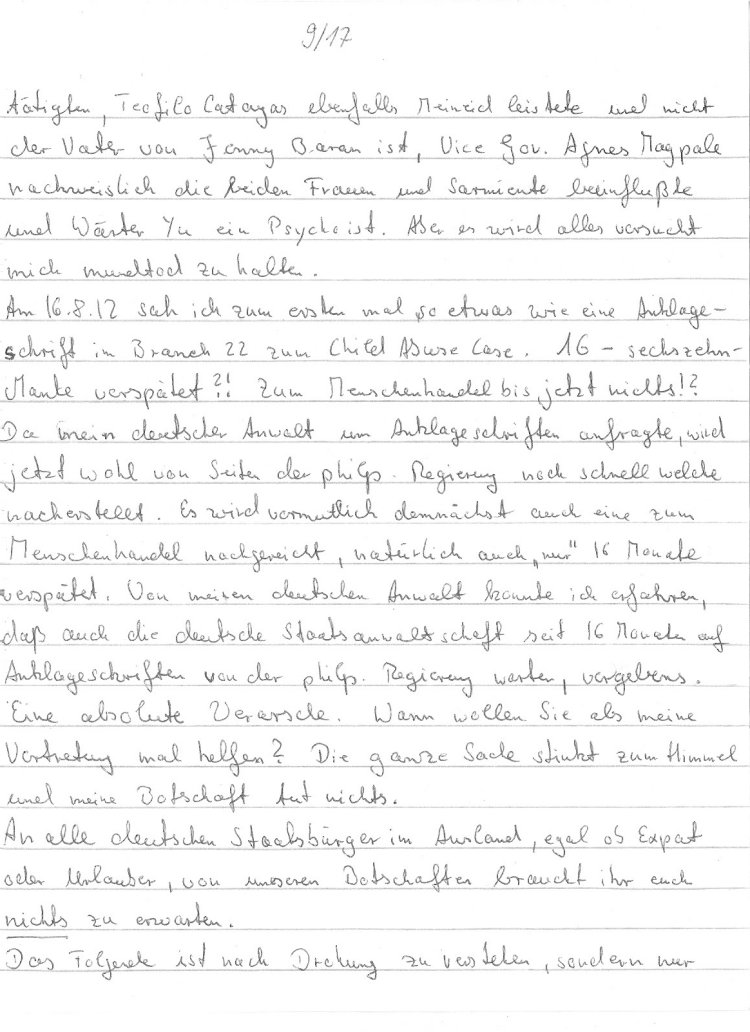 9/17
tätigten, Teofilo Catagas ebenfalls Meineid leistete und nicht
der Vater von Jenny Baran ist, Vice Gov. Agnes Magpale
nachweislich die beiden Frauen und Sarmiento beeinflußte
und Wärter Yu ein Psycho ist. Aber es wird alles versucht
mich mundtod zu halten.
Am 16.8.12 sah ich zum ersten mal so etwas wie eine Anklage-
schrift in Branch 22 zum Child Abuse Case. 16 - sechszehn-
Monte verspätet?!! Zum Menschenhandel bis jetzt nichts!?
Da mein deutscher Anwalt um Anklageschriften anfragte, wird
jetzt wohl von Seiten der philp. Regierung noch schnell welche
nacherstellt. Es wird vermutlich demnächst auch eine zum
Menschenhandel nachgereicht, natürlich auch "nur" 16 Monate
verspätet. Von meinen deutschen Anwalt konnte ich erfahren,
daß auch die deutsche Staatsanwaltschaft seit 16 Monaten auf
Anklageschriften von der philp. Regierung warten, vergebens.
Eine absolute Verarsche. Wann wollen Sie als meine
Vertretung mal helfen? Die ganze Sache stinkt zum Himmel
und meine Botschaft tut nichts.
An alle deutschen Staatsbürger im Ausland, egal ob Expat
oder Urlauber, von unseren Botschaften braucht ihr euch
nichts zu erwarten.
Das Folgende ist nach Drohung zu verstehen, sondern nur